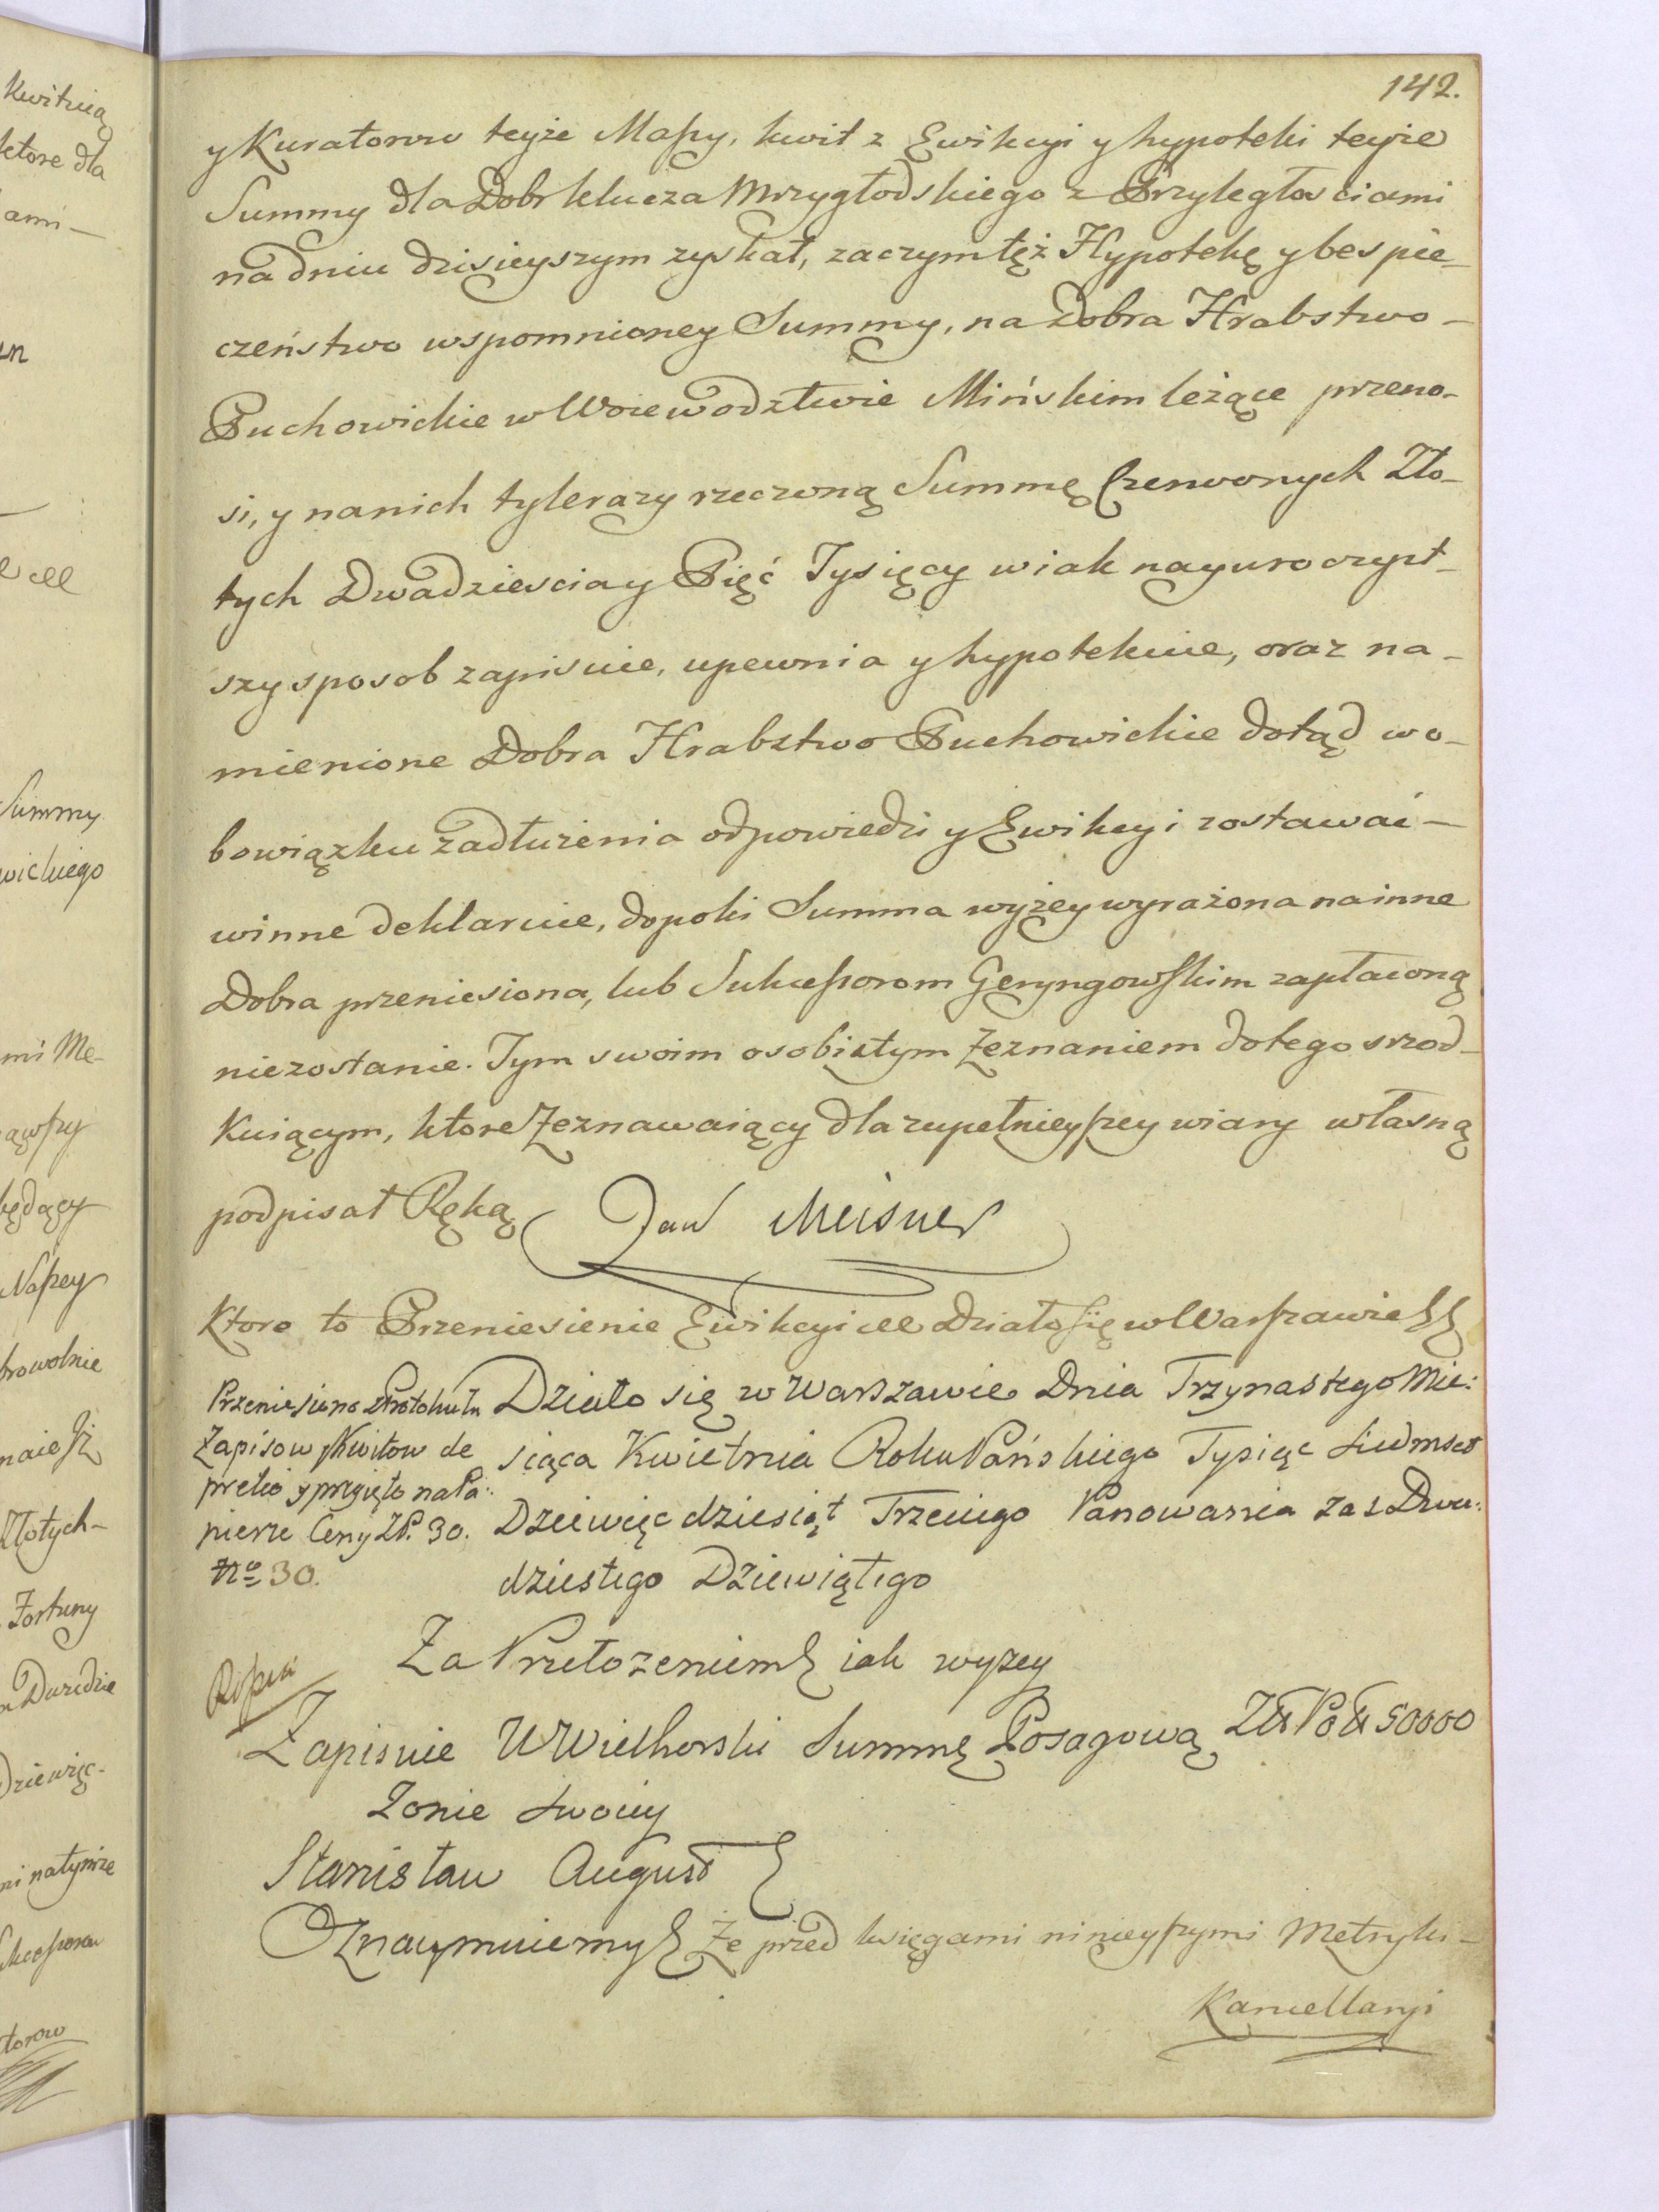 142.
y Kuratorow teyże Massy, kwit z Ewikcyi y hypoteki teyże
Summy dla Dobr klucza Mrzygłodskiego z Przyległościami
na dniu dzisieyszym zyskał, zaczym też Hypotekę y bespie_
czeństwo wspomnioney Summy, na Dobra Hrabstwo _
Puchowickie w Woiewodztwie Mińskim leżące przeno_
si, y na nich tylerazy rzeczoną Summę Czerwonych Zło_
tych Dwadziescia y Pięć Tysięcy w iak nayuroczyst_
szy sposob zapisuie, upewnia y hypotekuie, oraz na_
mienione Dobra Hrabstwo Puchowickie dotąd w o_
bowiązku zadłużenia odpowiedzi y Ewikcyi zostawać _
winne deklaruie, dopoki Summa wyżey wyrażona na inne
Dobra przeniesiona, lub Sukcessorom Geryngowskim zapłaconą
niezostanie. Tym swoim osobistym Zeznaniem do tego srzod_
kuiącym, ktore Zeznawaiący dla zupełnieyszey wiary własną
podpisał Ręką Jan Meisner
Ktore to Przeniesienie Ewikcyi etc Działo się w Warszawie
Przeniesiono z Protokułu
Zapisow y Kwitow de
pretio y przyięto na Pa:
pierze Ceny ZP. 30.
No 30.
Działo się w Warszawie Dnia Trzynastego Mie:
siąca Kwietnia Roku Pańskiego Tysiąc Siedmset
Dziewięcdziesiąt Trzeciego Panowania zaś Dwu:
dziestego Dziewiątego
Za Przełożeniem iak wyżey
Zapisuie U Wielhorski Summę Posagową Zł Pol 50000
Zonie Swoiey
Stanisław August
Oznaymuiemy Że przed księgami ninieyszymi Metryki _
Kancellaryi